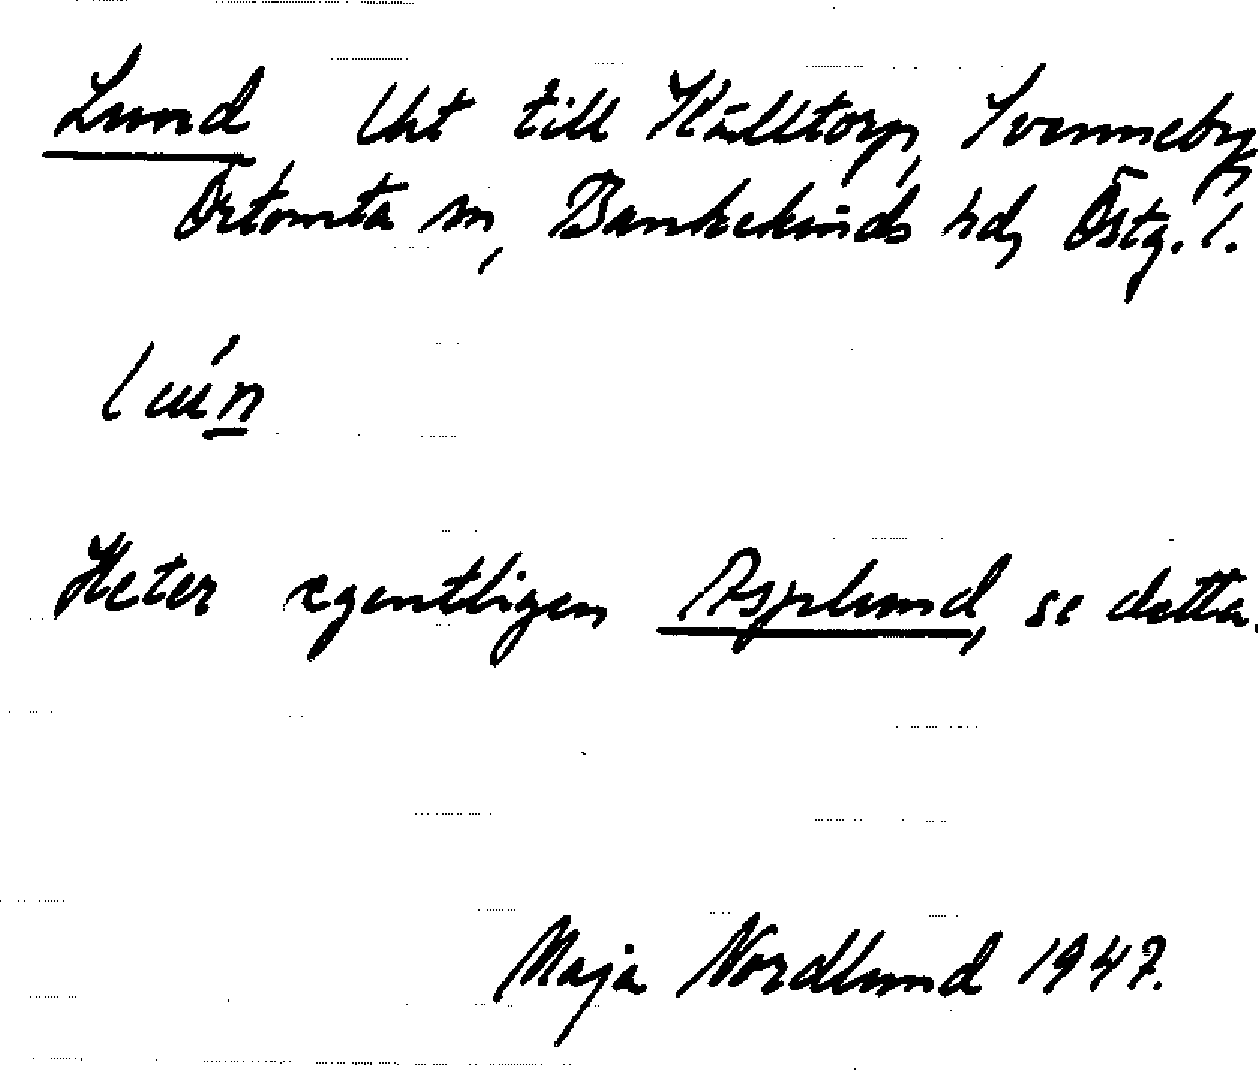 Lund Uht till Källtorp, Svenneby,
Örtomta sn, Bankekinds hd, Östg. l.
luńn
Heter egentligen Asplund, se detta.
Maja Nordlund 1947.